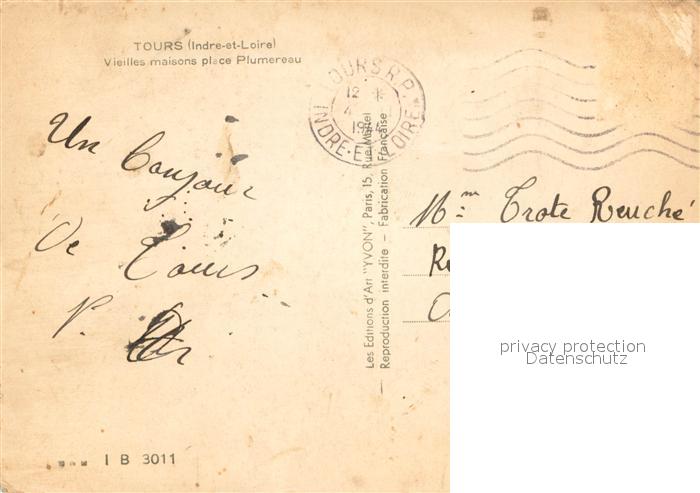 TOURS (Indre-et-Loire)
Vieilles maisons place Plumereau
TOURS R.P.
12 *
4
INDRE-ET-LOIRE
Un bonjour
de Tours
P.
Les Editions d'Art "YVON", Paris, 15, Rue Martel
Reproduction interdite — Fabrication Française
Mme Trote Reuché
privacy protection
Datenschutz
I B 3011